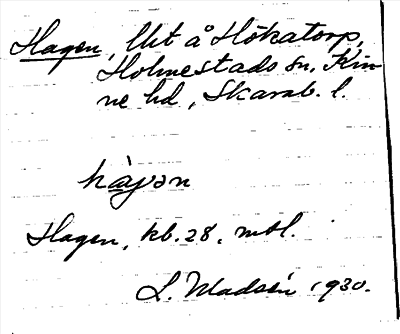 Hagen, Ut å Hökatorp,
Holmestads sn, Kin
ne hd, Skarab. l.
hàgən
Hagen, kb. 28, mtl.
L. Madsén 1930.